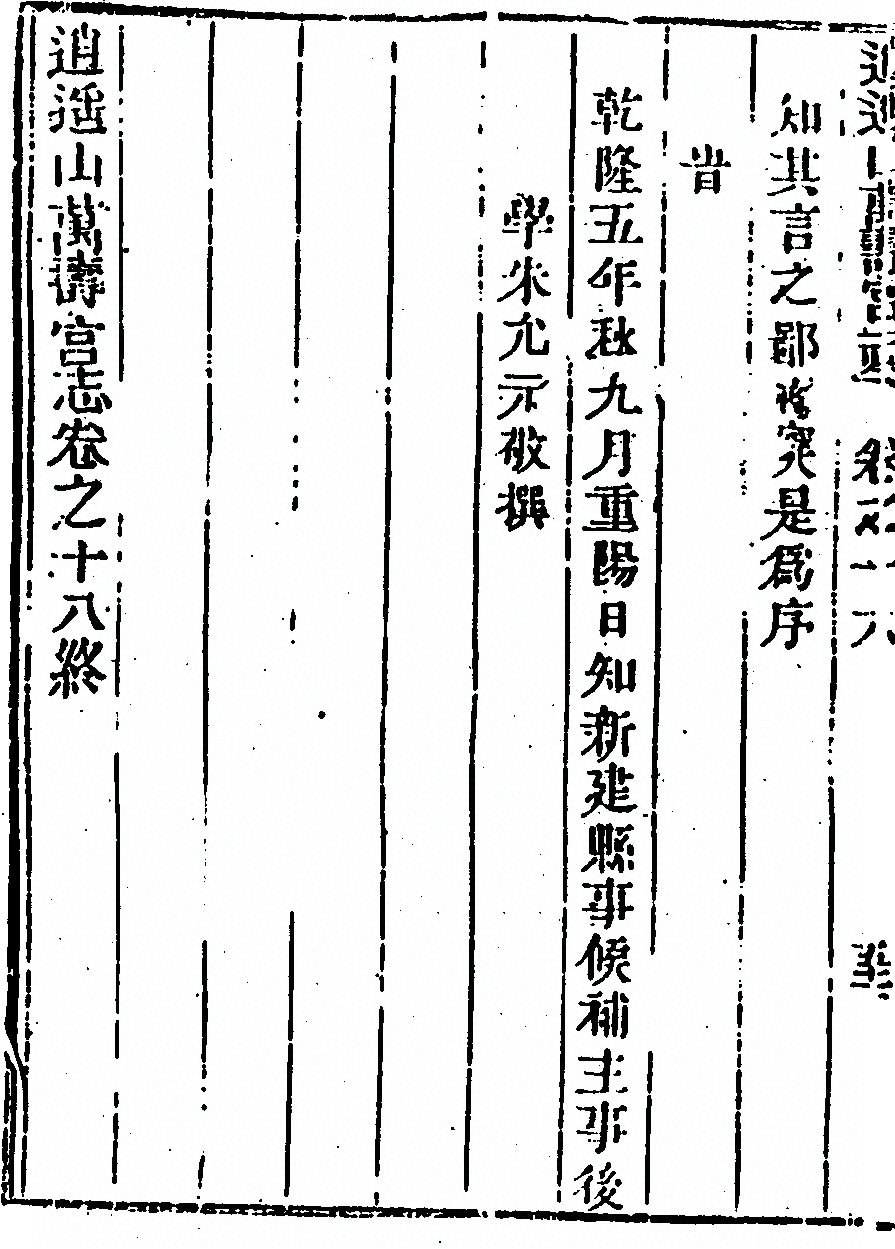 逍遥山萬壽宮志 卷之十八
知其言之鄙㑹突是爲序
旹
乾隆五年秋九月重陽日知新建縣事候補主事後
學朱允元敬撰
逍遥山萬壽宮志卷之十八終